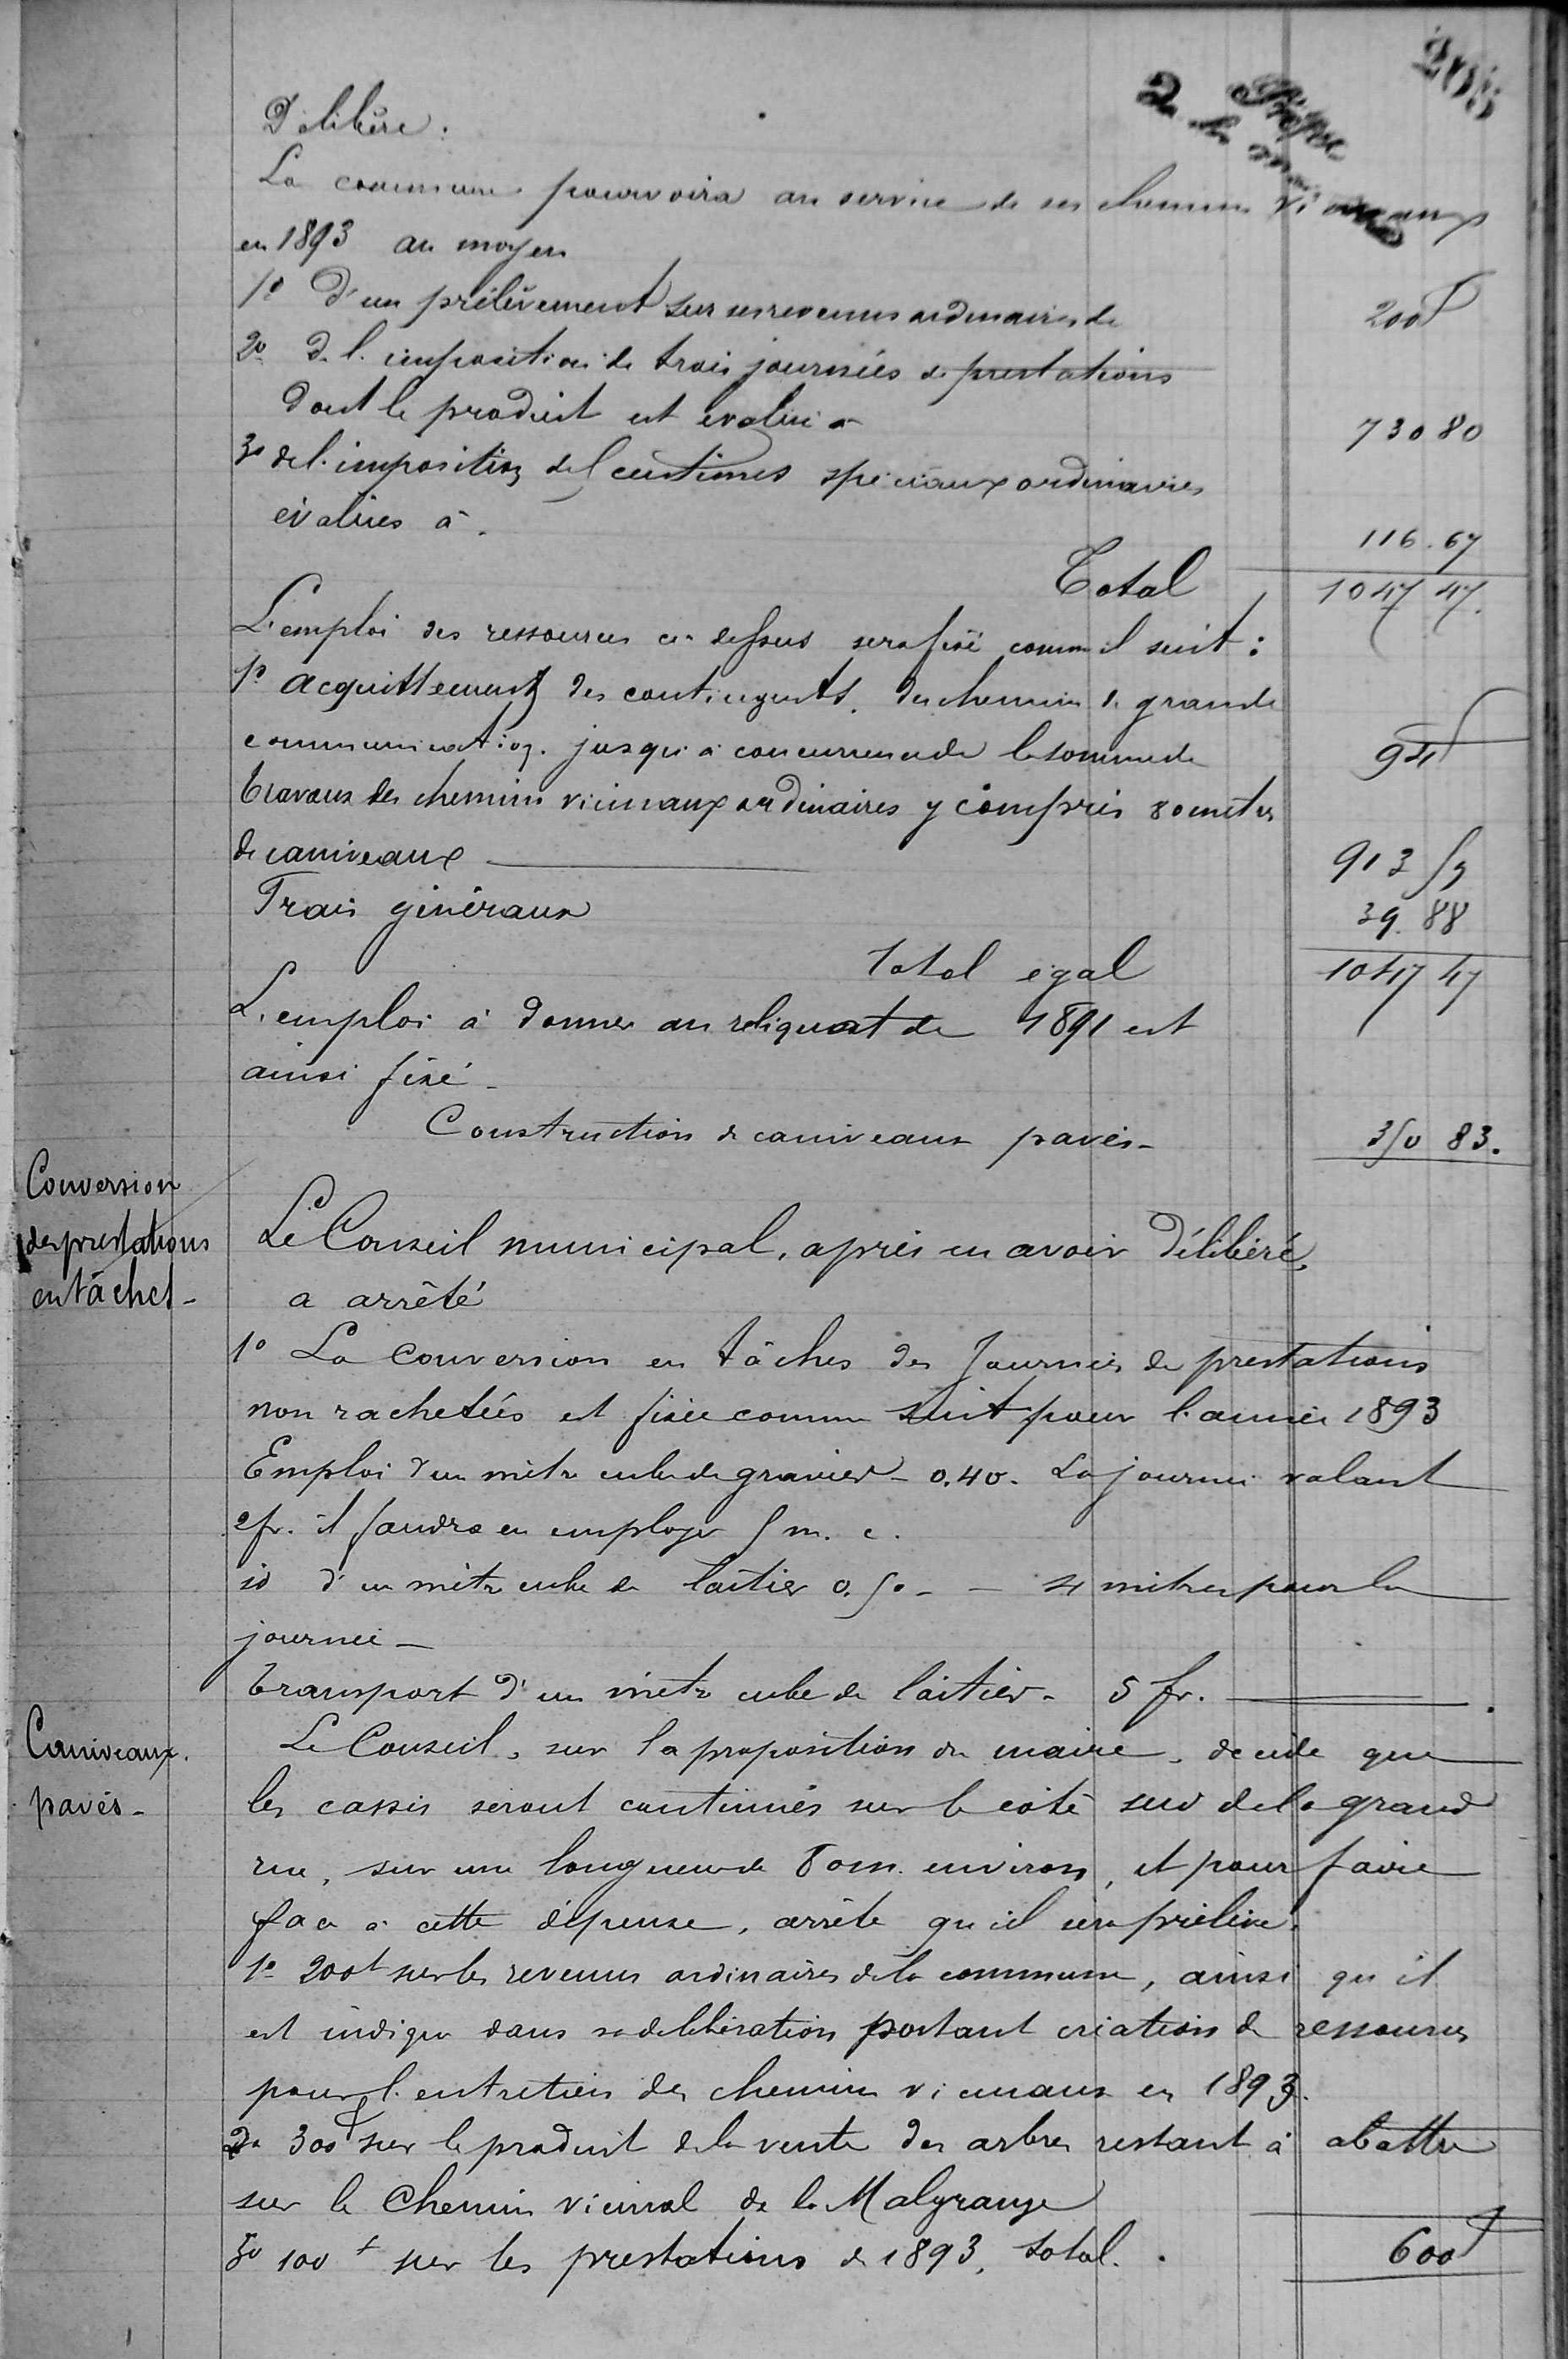 Délibère.
La commune pourvoira au service de ses chemins vicinaux
en 1893 au moyen
1º D'un prélèvement sur ses revenus ordinaires de 200f
2º De l'imposition de trois journées de prestations
dont le produit est évalué à 730 80
3º de l'imposition de 5 centimes spéciaux ordinaires
évalués à. 116.67
Total 1047 47.
L'emploi des ressources ci-dessus sera fixé comme il suit :
1º acquittement des contingents des chemins de grande
communication. jusqu'à concurrence de la somme de 94f
Travaux des chemins vicinaux ordinaires y compris 80 mètres
de caniveaux 913 59
Frais généraux 39.88
Total égal 1047 47
L'emploi à donner au reliquat de 1891 est
ainsi fixé -
Construction de caniveaux pavés - 350 83.
Conversion
des prestations
en tâches -
Le Conseil municipal, après en avoir délibéré,
a arrêté
1º La conversion en tâches des Journées de prestations
non rachetées est fixée comme suit pour l'année 1893
Emploi d'un mètre cube de gravier - 0.40. La journée valant
2fr. il faudra en employer 5 m. c.
id d'un mètre cube de laitier 0.50 - - 4 mètres pour la
journée -
Transport d'un mètre cube de laitier - 5 fr.
Caniveaux.
pavés -
Le Conseil, sur la proposition du maire, décide que
les cassis seront continués sur le côté sud de la grand
rue, sur une longueur de 80m. environ, et pour faire
face à cette dépense, arrête qu'il sera prélevé.
1º 200f sur les revenus ordinaires de la commune, ainsi qu'il
est indiqué dans sa délibération portant création de ressources
pour l'entretien des chemins vicinaux en 1893.
2º 300f sur le produit de la vente des arbres restant à abattre
sur le chemin vicinal de la Malgrange
3º 100f sur les prestations de 1893, total. 600f